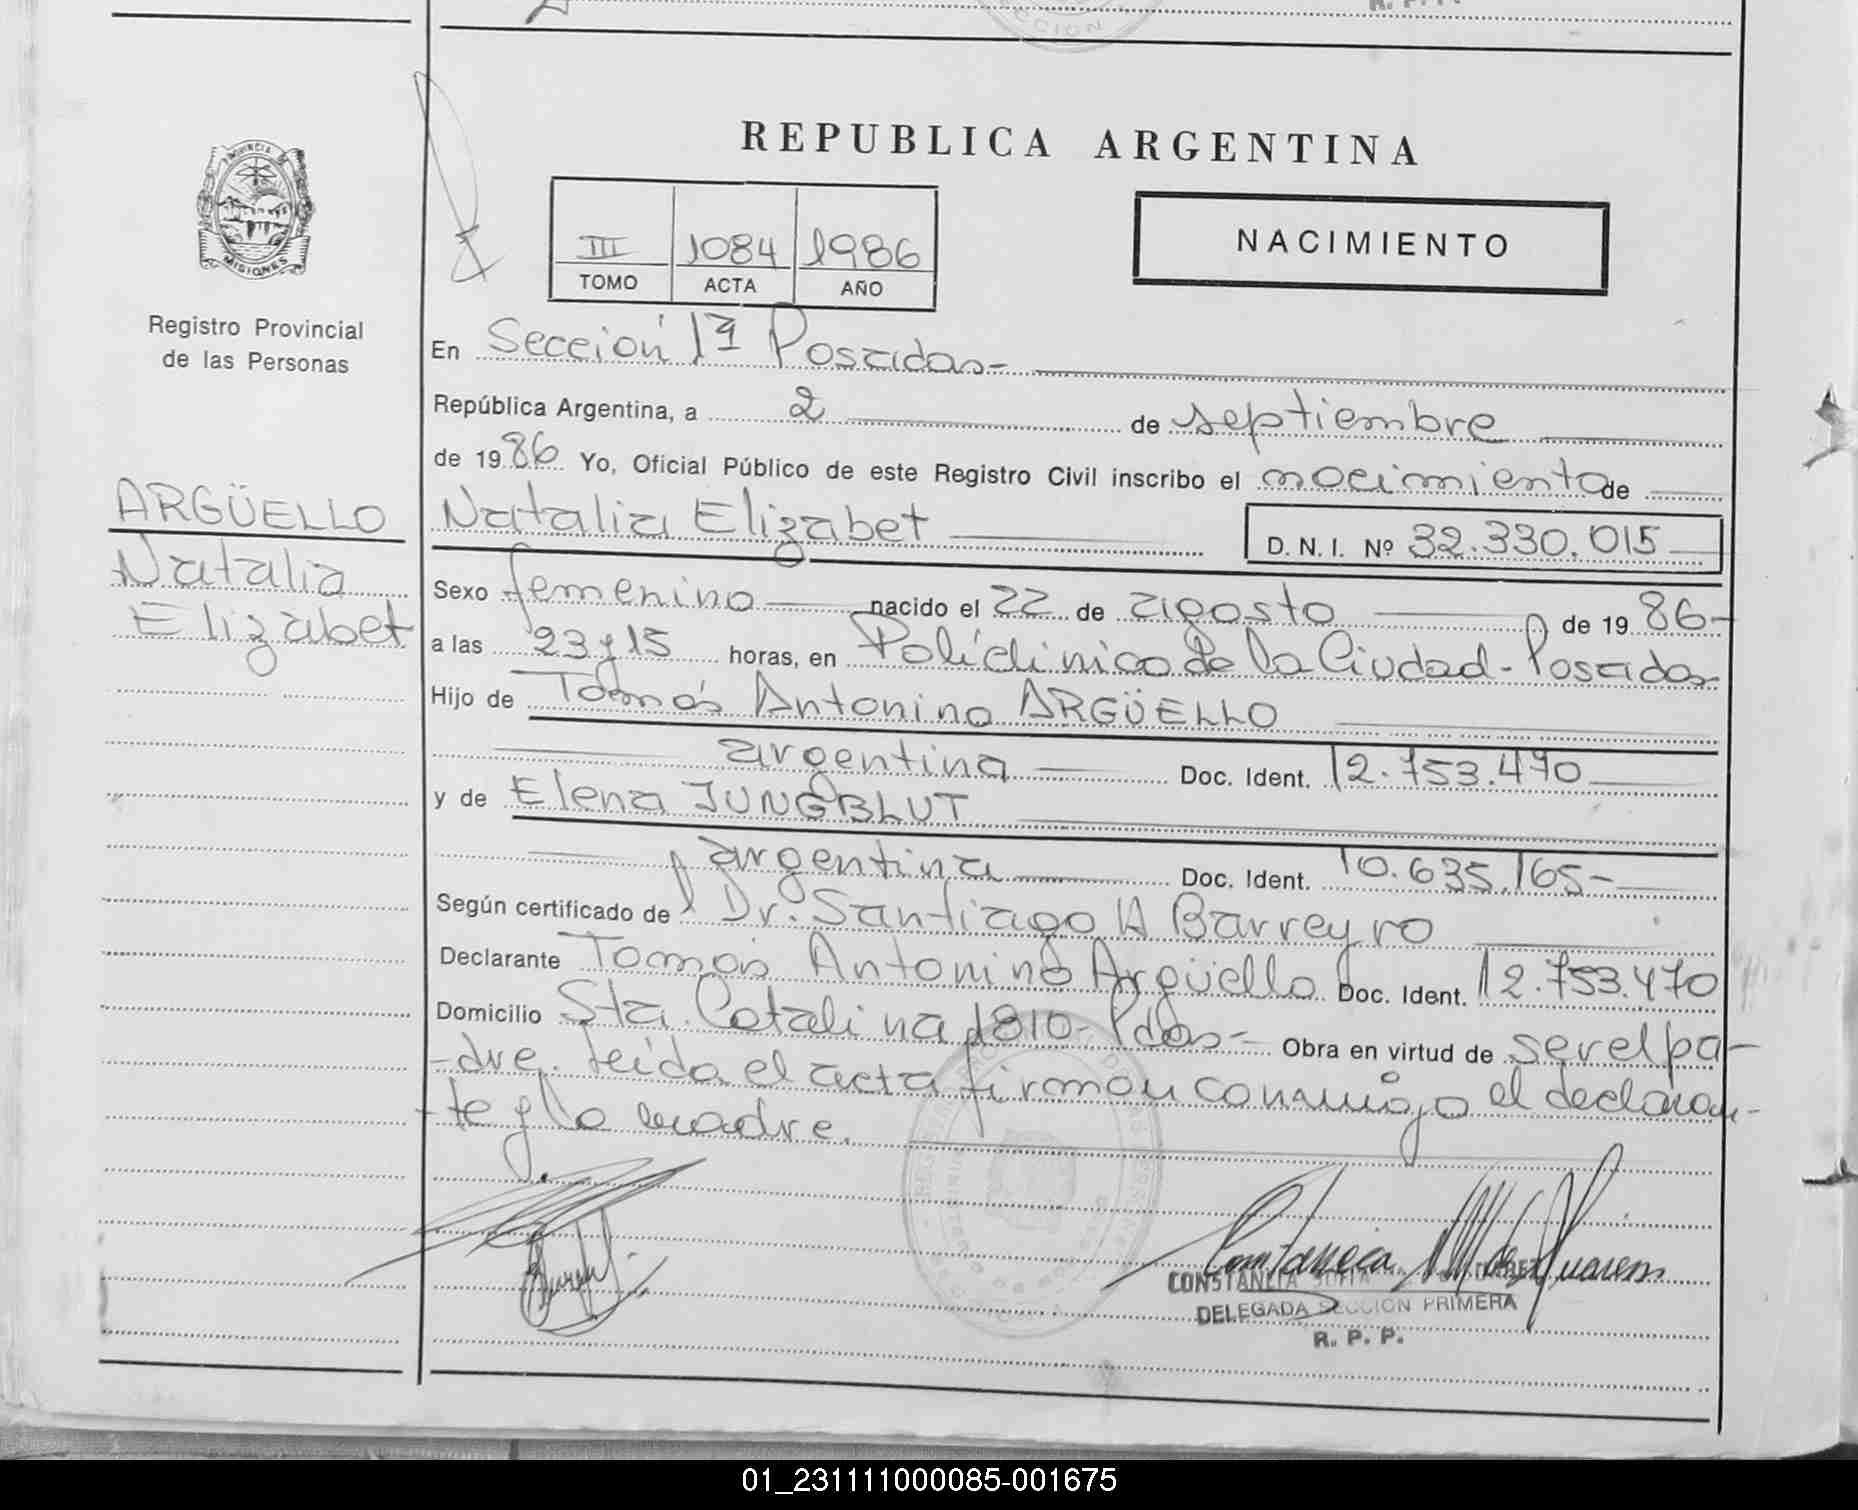 R. P. P.
CCION
REPUBLICA ARGENTINA
PROVINCIA DE
MISIONES
Registro Provincial
de las Personas
III 1084 1986
TOMO ACTA AÑO
NACIMIENTO
En Sección 1ª Posadas-
República Argentina, a 2 de septiembre
de 1986 Yo, Oficial Público de este Registro Civil inscribo el nacimiento de
ARGÜELLO
Natalia
Elizabet
Natalia Elizabet D. N. I. Nº 32.330.015
Sexo femenino nacido el 22 de agosto de 1986-
a las 23 y 15 horas, en Policlinico de la Ciudad-Posadas
Hijo de Tomás Antonino ARGÜELLO
argentina Doc. Ident. 12.753.470
y de Elena JUNGBLUT
argentina Doc. Ident. 10.635.165-
Según certificado del Dr. Santiago H Barreyro
Declarante Tomás Antonino Argüello Doc. Ident. 12.753.470
Domicilio Sta. Catalina 1810-Pdas- Obra en virtud de ser el pa-
-dre. Leída el acta firman conmigo el declaran-
-te y la madre.
CONSTANCIA SOFIA
DELEGADA SECCION PRIMERA
R. P. P.
01_231111000085-001675